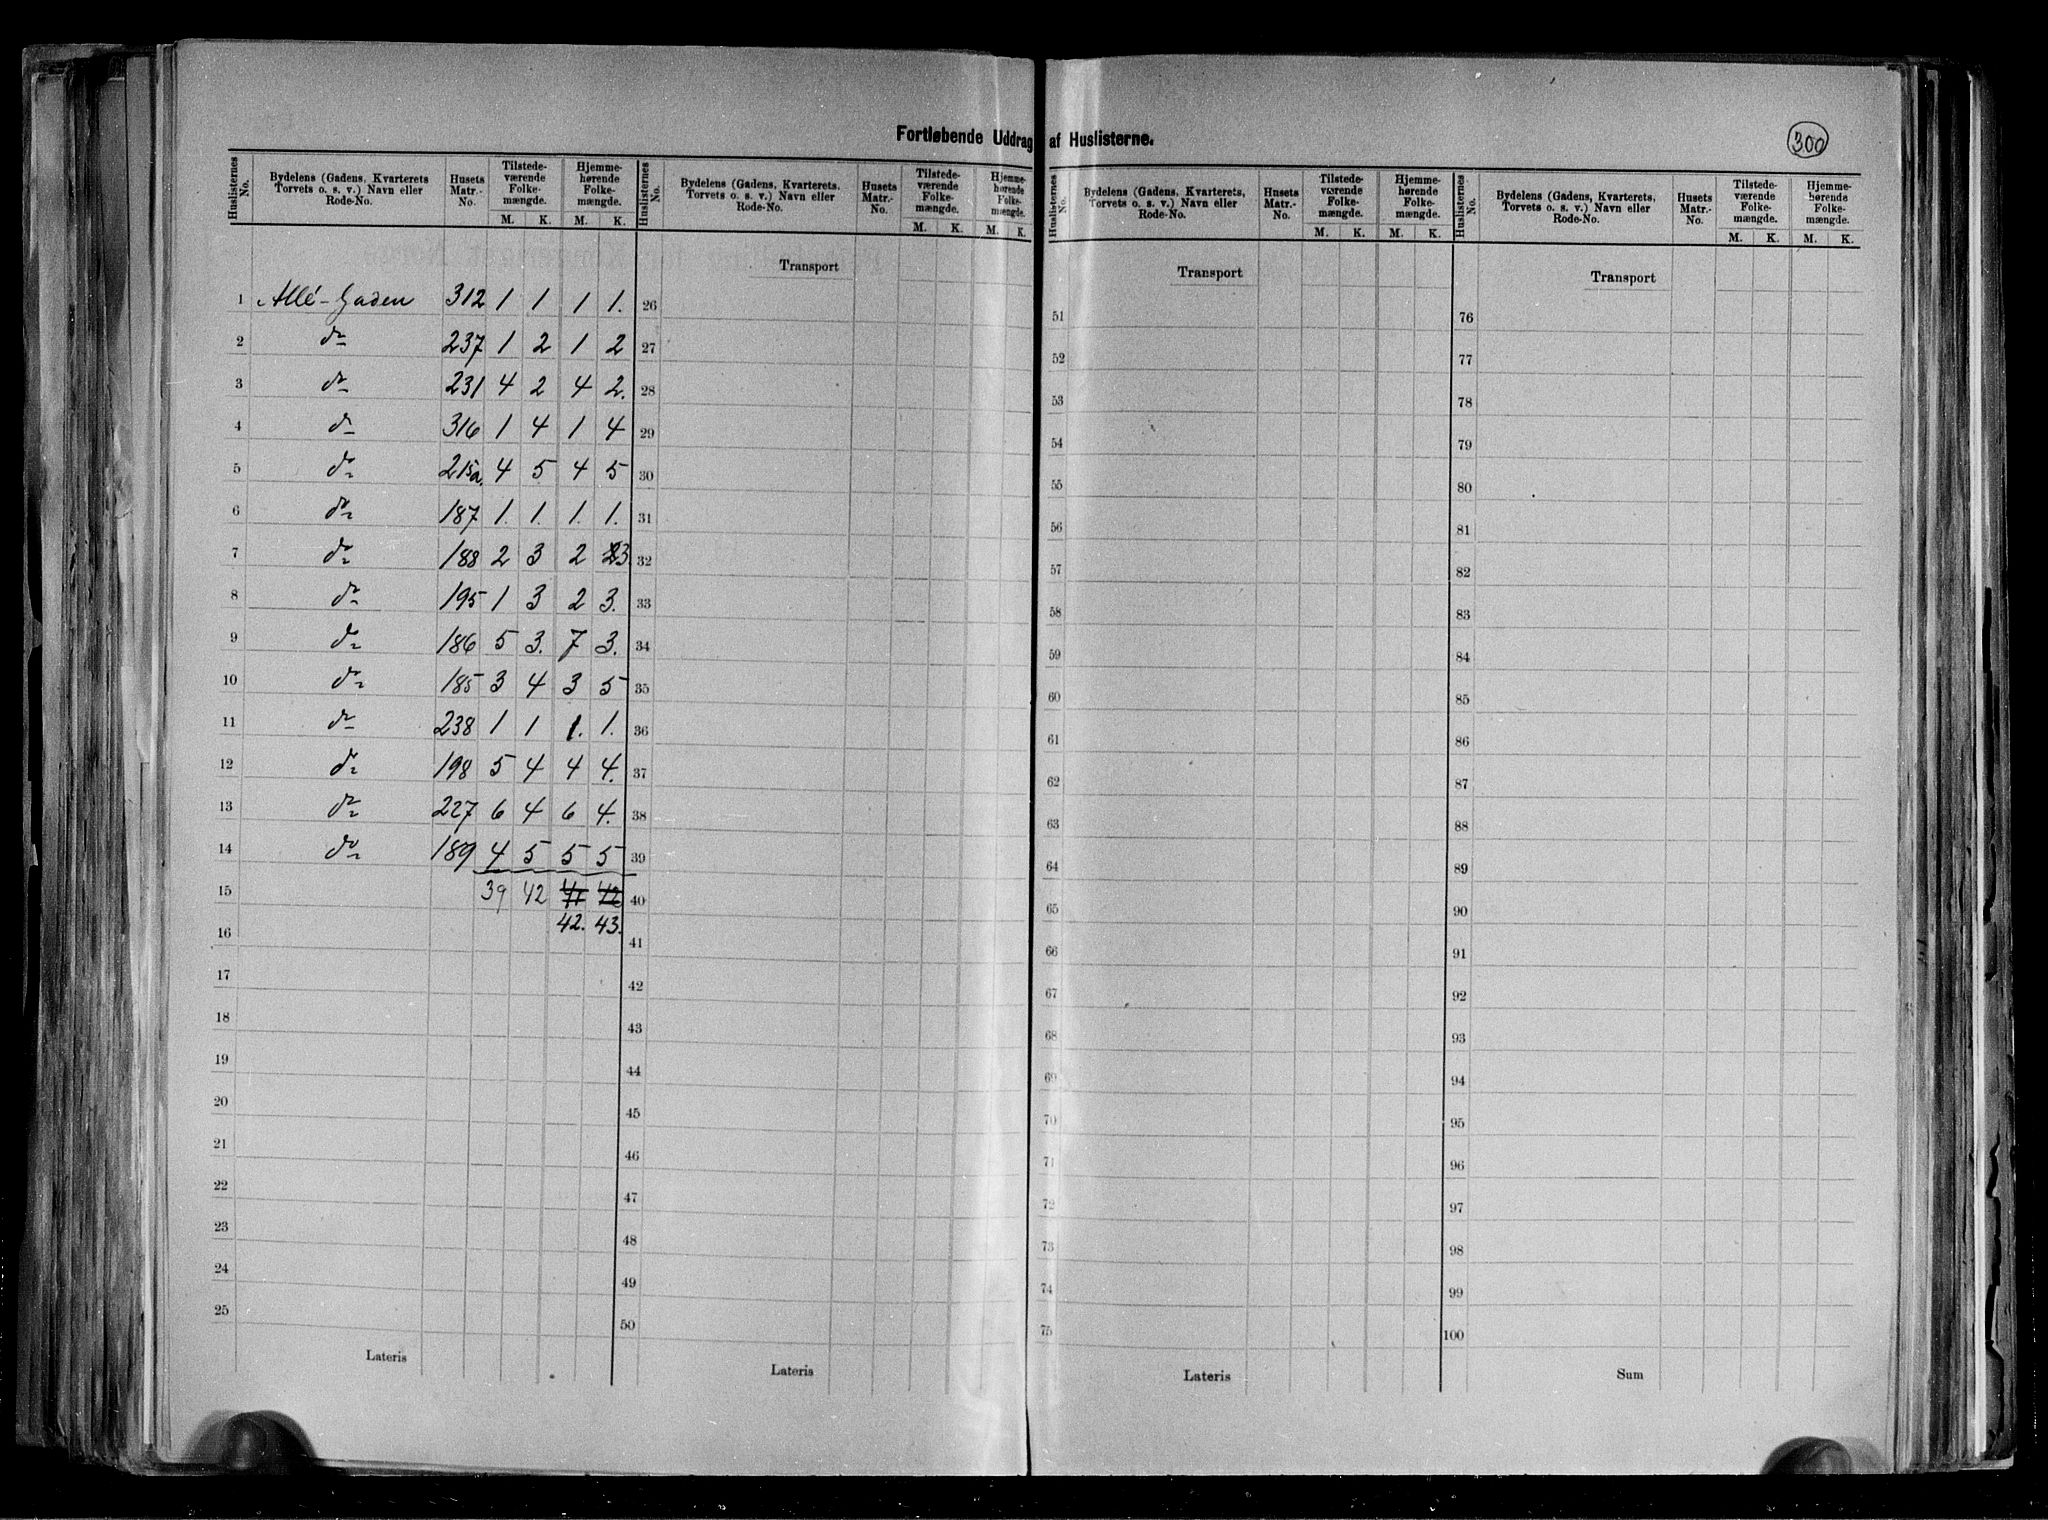 Fortløbende Uddrag af Huslisterne.
300
Huslisternes No. | Bydelens (Gadens, Kvarterets Torvets o. s. v.) Navn eller Rode-No. | Husets Matr.-No. | Tilstede-værende Folke-mængde. M. K. | Hjemme-hørende Folke-mængde. M. K.
1 Allé-Gaden 312 1 1 1 1.
2 do 237 1 2 1 2
3 do 231 4 2 4 2.
4 do 316 1 4 1 4
5 do 215a. 4 5 4 5
6 do 187 1. 1. 1. 1.
7 do 188 2 3 2 3.
8 do 195 1 3 2 3.
9 do 186 5 3. 7 3.
10 do 185 3 4 3 5
11 do 238 1 1 1. 1.
12 do 198 5 4 4 4.
13 do 227 6 4 6 4.
14 do 189 4 5 5 5
15 39 42 41 42
16 42. 43.
17
18
19
20
21
22
23
24
25
Lateris
Huslisternes No. | Bydelens (Gadens, Kvarterets, Torvets o. s. v.) Navn eller Rode-No. | Husets Matr.-No. | Tilstede-værende Folke-mængde. M. K. | Hjemme-hørende Folke-mængde. M. K.
Transport
26
27
28
29
30
31
32
33
34
35
36
37
38
39
40
41
42
43
44
45
46
47
48
49
50
Lateris
Huslisternes No. | Bydelens (Gadens, Kvarterets, Torvets o. s. v.) Navn eller Rode-No. | Husets Matr.-No. | Tilstede-værende Folke-mængde. M. K. | Hjemme-hørende Folke-mængde. M. K.
Transport
51
52
53
54
55
56
57
58
59
60
61
62
63
64
65
66
67
68
69
70
71
72
73
74
75
Lateris
Huslisternes No. | Bydelens (Gadens, Kvarterets, Torvets o. s. v.) Navn eller Rode-No. | Husets Matr.-No. | Tilstede-værende Folke-mængde. M. K. | Hjemme-hørende Folke-mængde. M. K.
Transport
76
77
78
79
80
81
82
83
84
85
86
87
88
89
90
91
92
93
94
95
96
97
98
99
100
Sum